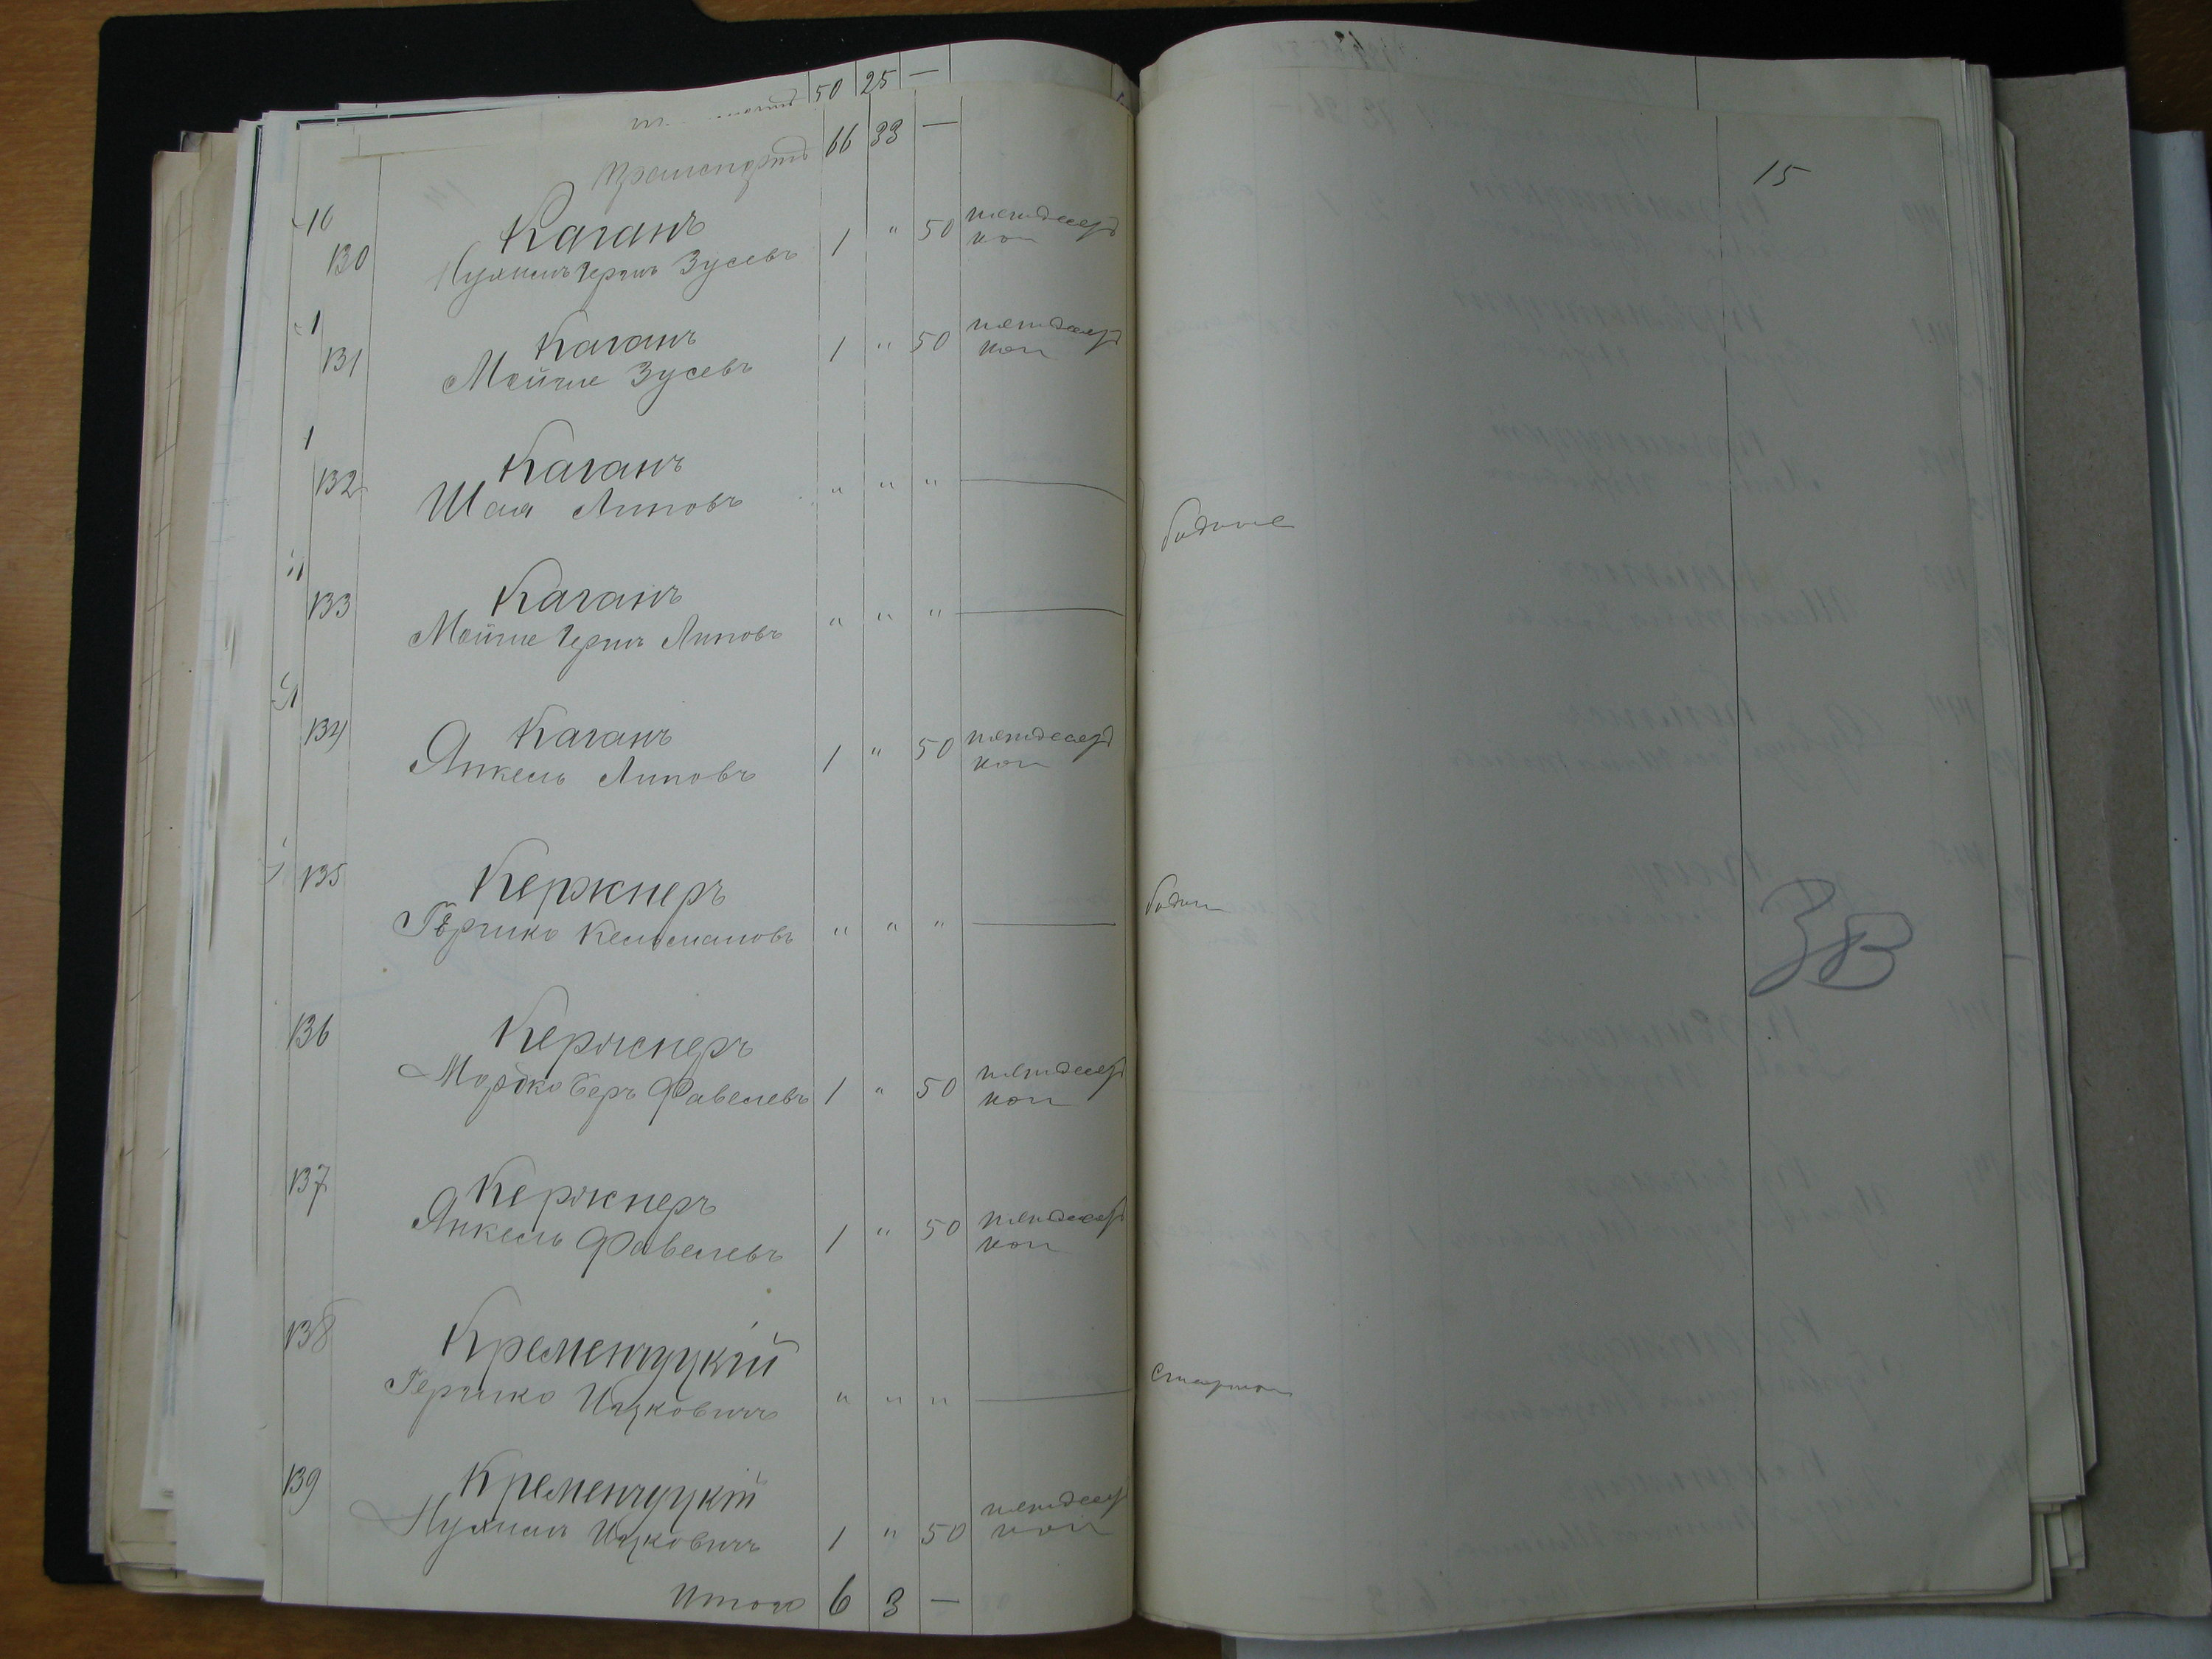 50 25 —
Транспортъ 66 33 —
130 Каганъ
Нухимъ Герш Зусевъ 1 " 50 пятдесят
коп
131 Каганъ
Мойше Зусевъ 1 " 50 пятдесят
коп
132 Каганъ
Шая Липовъ " " " — бедные
133 Каганъ
Мойше Герш Липовъ " " " —
134 Каганъ
Янкель Липовъ 1 " 50 пятдесят
коп
135 Кержнеръ
Гершко Кельмановъ " " " —
136 Кержнеръ
Мордко Беръ Фавелевъ 1 " 50 пятдесят
коп
137 Кержнеръ
Янкель Фавелевъ 1 " 50 пятдесят
коп
138 Кременчуцкій
Гершко Ицковичъ " " " —
139 Кременчуцкій
Нухимъ Ицковичъ 1 " 50 пятдесят
коп
Итого 6 3 —
15